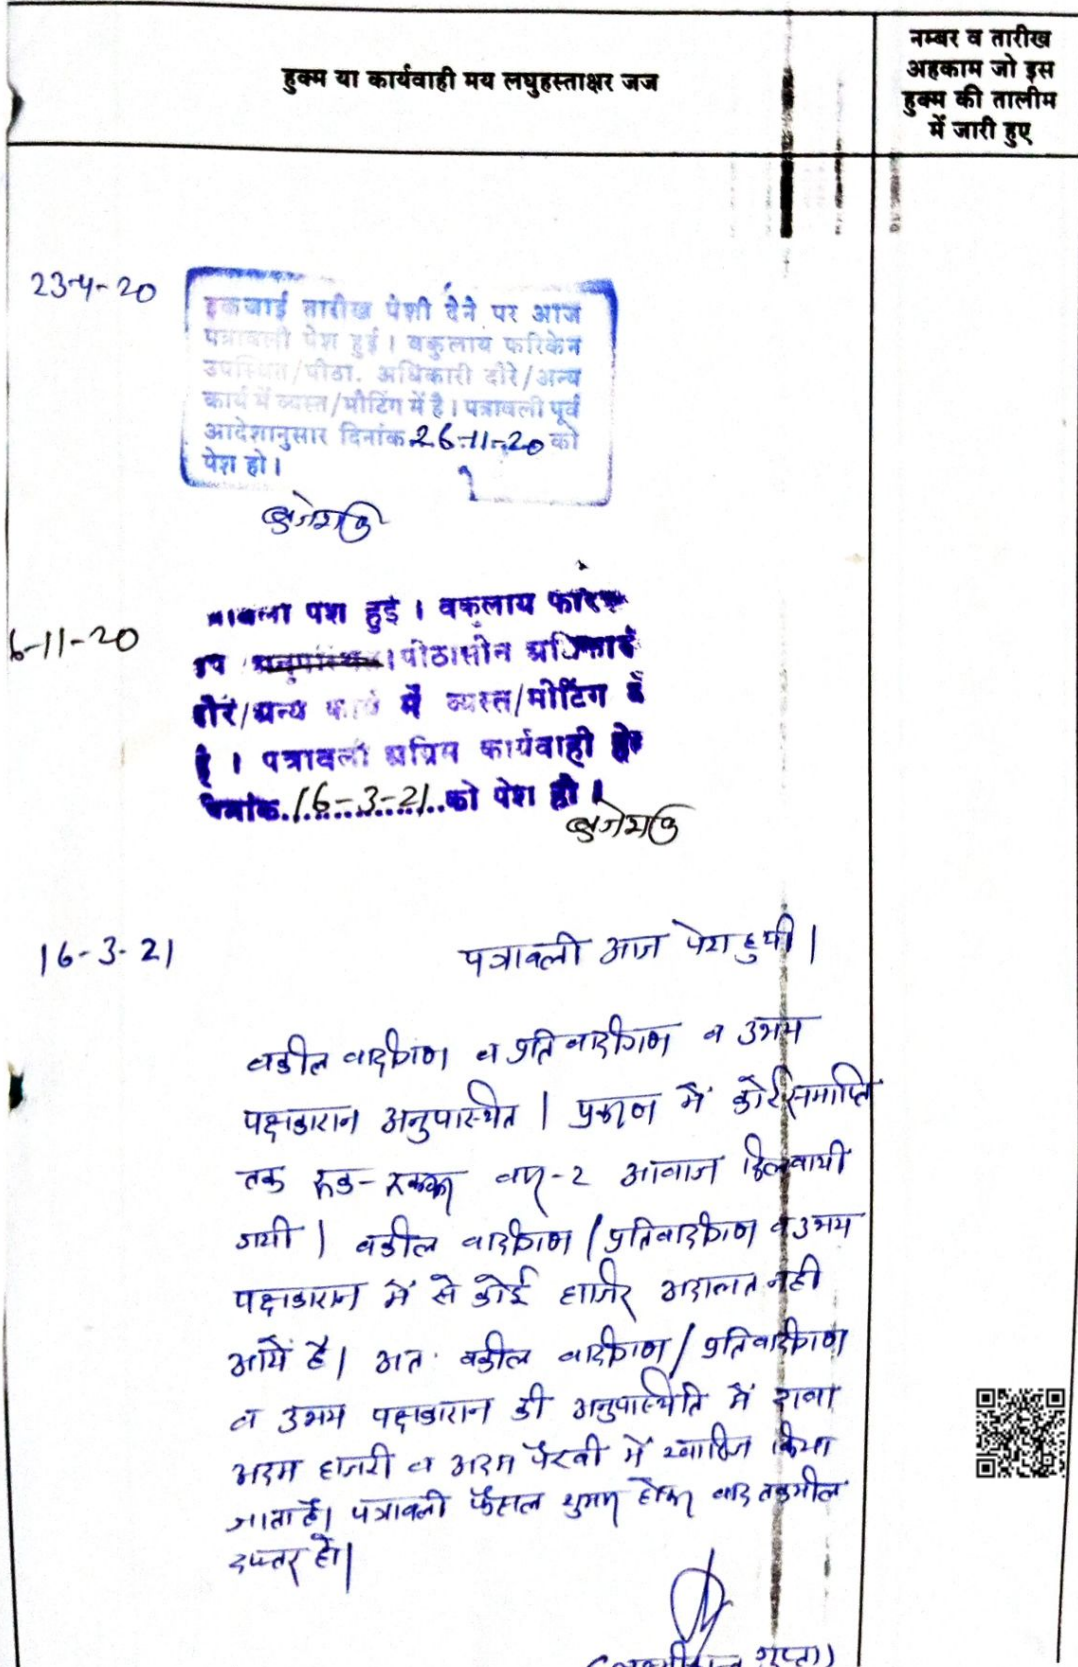 हुक्म या कार्यवाही मय लघुहस्ताक्षर जज
नम्बर व तारीख
अहकाम जो इस
हुक्म की तालीम
में जारी हुए
23-4-20
इकजाई तारीख पेशी देने पर आज
पत्रावली पेश हुई। वकुलाय फरिकेन
उपस्थित/पीठा. अधिकारी दौरे/अन्य
कार्य में व्यस्त/मीटिंग में है। पत्रावली पूर्व
आदेशानुसार दिनांक 26-11-20 को
पेश हो।
6-11-20
पेश हुई । वकलाय
उप / अनुपस्थित। पीठासीन
दौरे/अन्य कार्य में व्यस्त/मीटिंग में
है । पत्रावली अग्रिम कार्यवाही हेतु
दिनांक 16-3-21 को पेश हो ।
16-3-21
पत्रावली आज पेश हुयी।
वकील वादीगण व प्रतिवादीगण व उभय
पक्षकारान अनुपस्थित । प्रकरण में कोर्ट समाप्ति
तक रूक-रूककर बार-2 आवाज दिलवायी
गयी । वकील वादीगण / प्रतिवादीगण व उभय
पक्षकारान में से कोई हाजिर अदालत नही
आये है। अतः वकील वादीगण / प्रतिवादीगण
व उभय पक्षकारान की अनुपस्थिति में दावा
अदम हाजरी व अदम पैरवी में खारिज किया
जाता है। पत्रावली फैसल शुमार होकर बाद तकमील
दफ्तर हो।
गुप्ता)